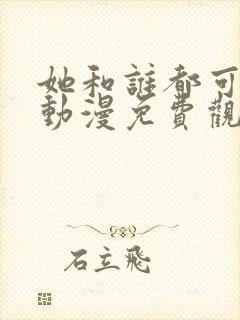 她和誰都可
動漫免費觀
石立飛